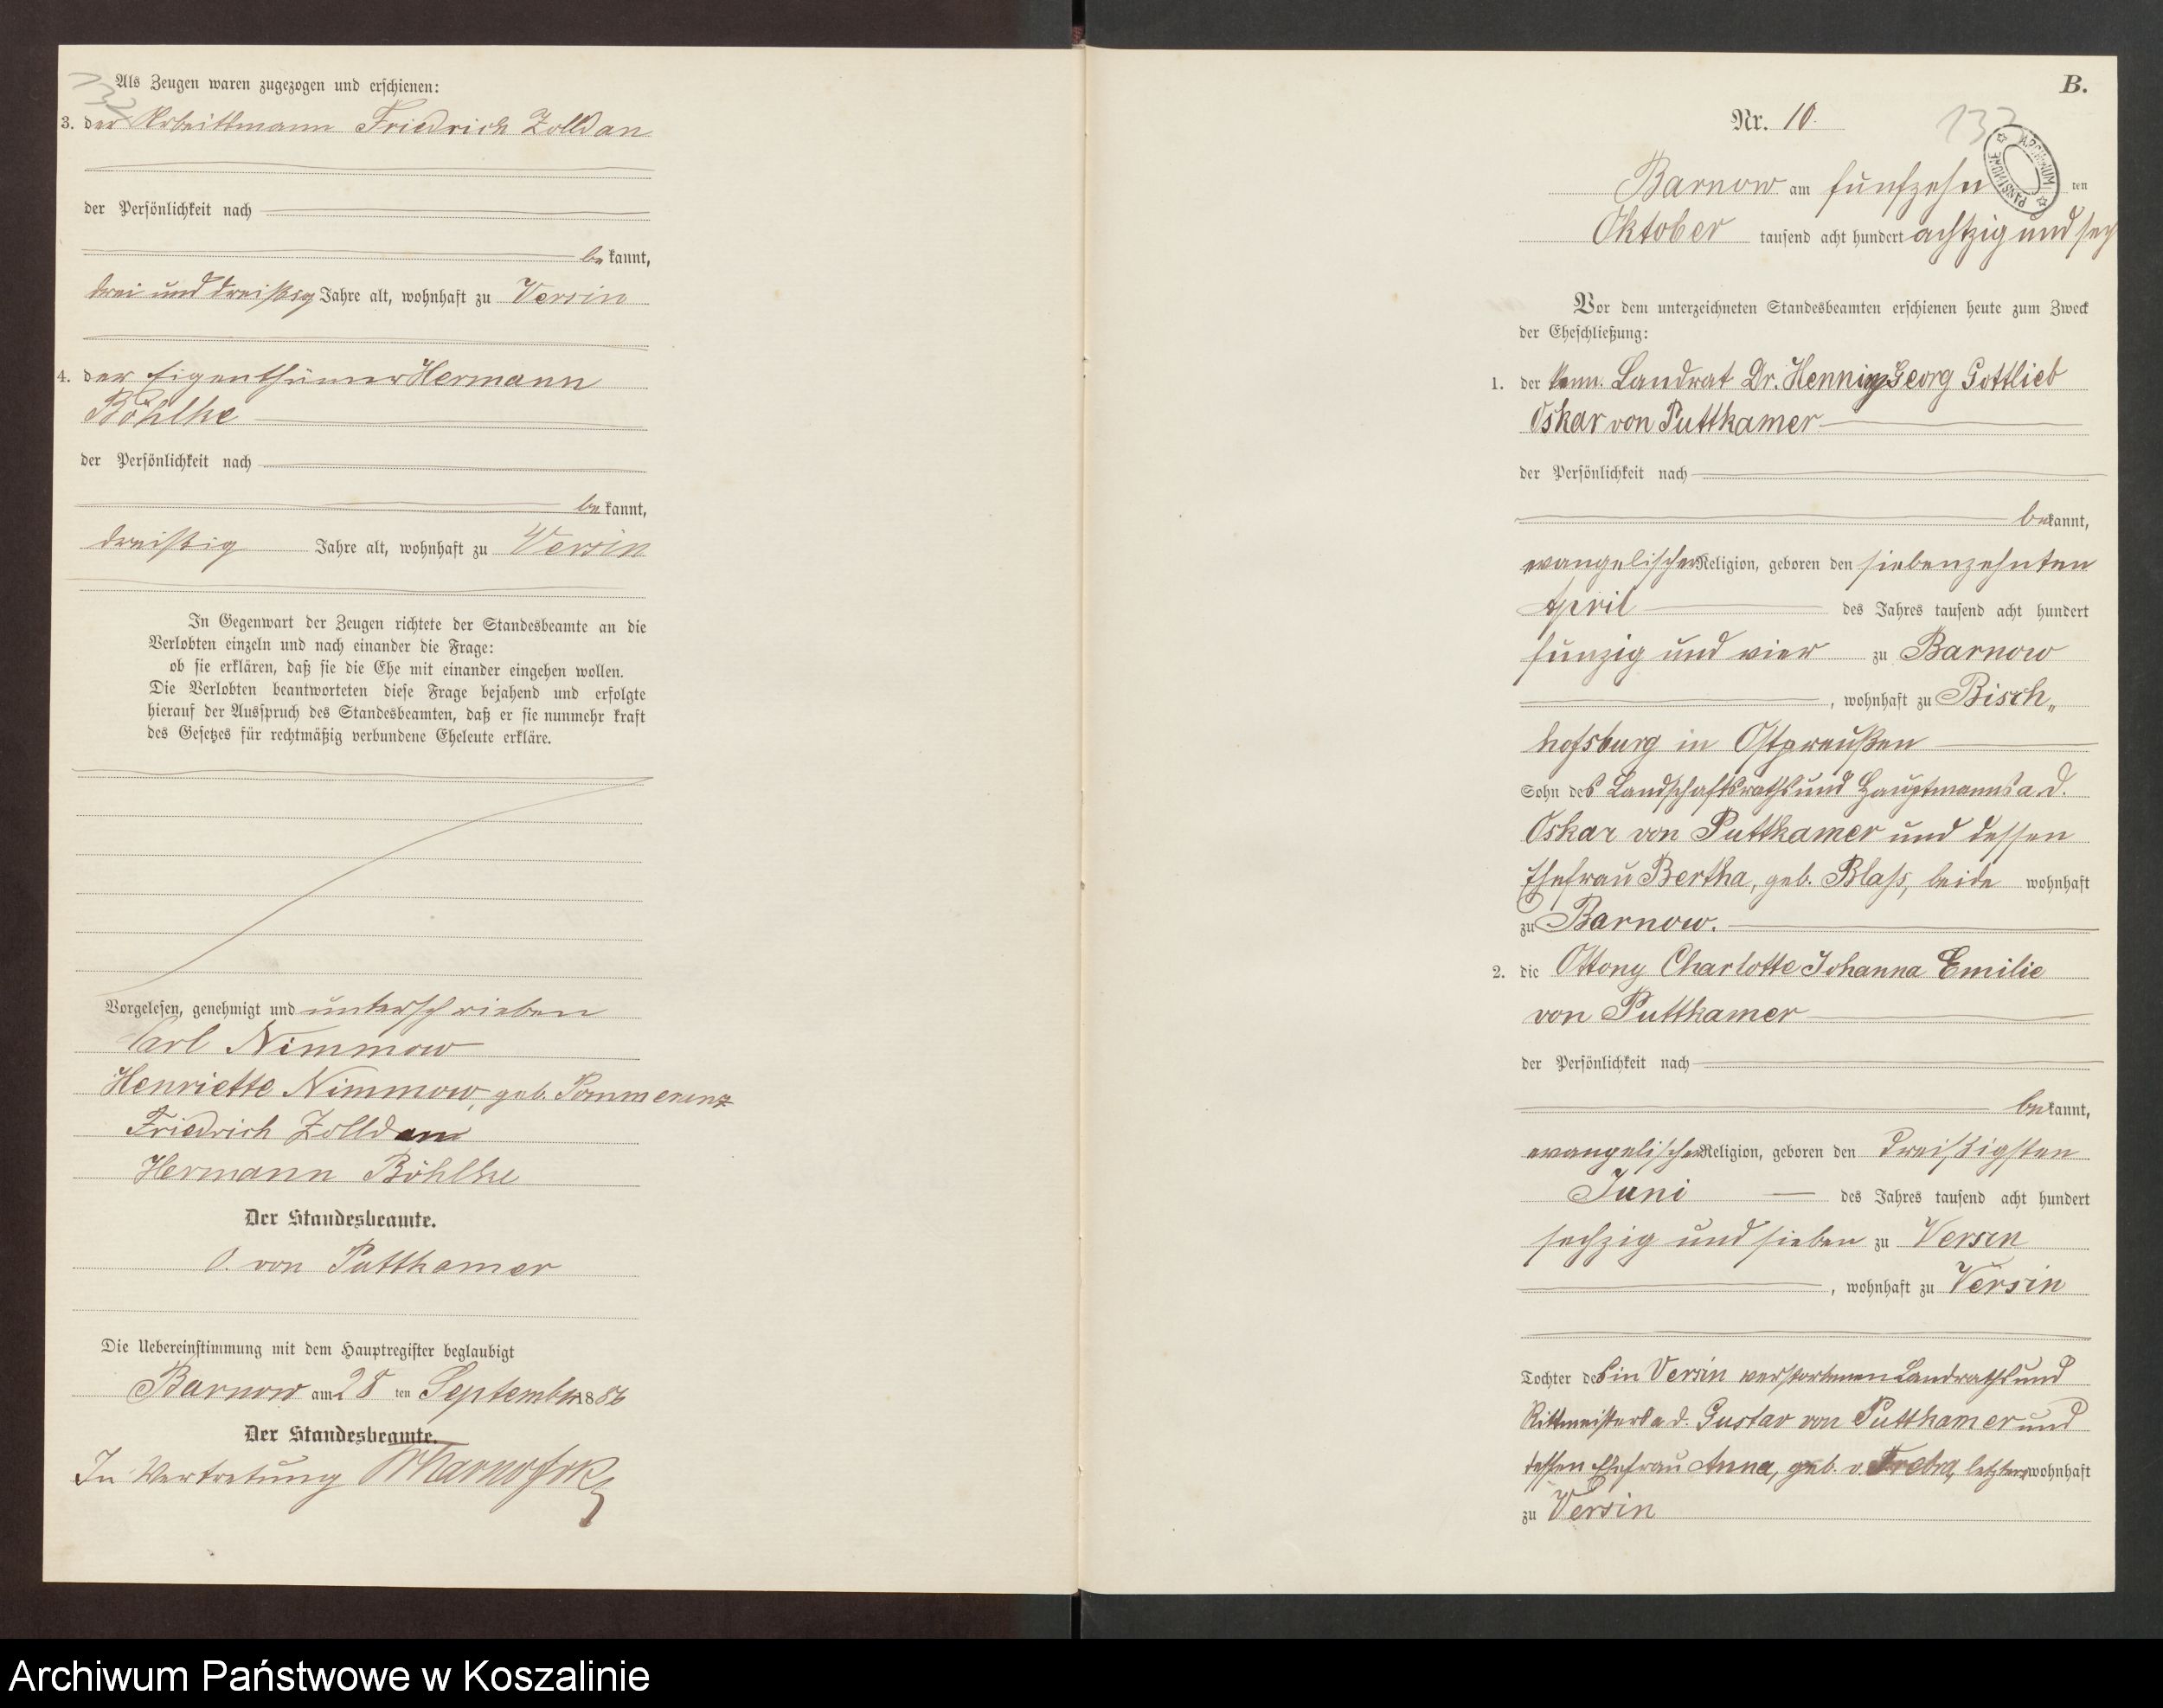 Als Zeugen waren zugezogen und erschienen:
3. der Arbeitsmann Friedrich Zolldan
der Persönlichkeit nach
bekannt,
drei und dreißig Jahre alt, wohnhaft zu Versin
4. der Eigenthümer Hermann
Böhlke
der Persönlichkeit nach
bekannt,
dreißig Jahre alt, wohnhaft zu Versin
In Gegenwart der Zeugen richtete der Standesbeamte an die
Verlobten einzeln und nach einander die Frage:
ob sie erklären, daß sie die Ehe mit einander eingehen wollen.
Die Verlobten beantworteten diese Frage bejahend und erfolgte
hierauf der Ausspruch des Standesbeamten, daß er sie nunmehr kraft
des Gesetzes für rechtmäßig verbundene Eheleute erkläre.
Vorgelesen, genehmigt und unterschrieben
Carl Nimmow
Henriette Nimmow, geb. Pommerenz
Friedrich Zolldan
Hermann Böhlke
Der Standesbeamte.
O. von Puttkamer
Die Uebereinstimmung mit dem Hauptregister beglaubigt
Barnow am 28 ten September 1886
Der Standesbeamte.
In Vertretung
B.
Nr. 10.
133
Barnow am fünfzehn ten
Oktober tausend acht hundert achtzig und sech
Vor dem unterzeichneten Standesbeamten erschienen heute zum Zweck
der Eheschließung:
1. der Landrat Dr. Henning Georg Gottlieb
Oskar von Puttkamer
der Persönlichkeit nach
bekannt,
evangelischer Religion, geboren den siebenzehnten
April des Jahres tausend acht hundert
funzig und vier zu Barnow
, wohnhaft zu Bisch„
hofsburg in Ostpreußen
Sohn des Landschaftsraths und Hauptmanns a. d.
Oskar von Puttkamer und dessen
Ehefrau Bertha, geb. Blaß, beide wohnhaft
zu Barnow.
2. die Ottony Charlotte Johanna Emilie
von Puttkamer
der Persönlichkeit nach
bekannt,
evangelischer Religion, geboren den dreißigsten
Juni des Jahres tausend acht hundert
sechzig und sieben zu Versin
, wohnhaft zu Versin
Tochter des in Versin verstorbenen Landraths und
Rittmeisters a. d. Gustav von Puttkamer und
dessen Ehefrau Anna, geb. v. Trebra, letztere wohnhaft
zu Versin
ARCHIWUM PAŃSTWOWE
Archiwum Państwowe w Koszalinie